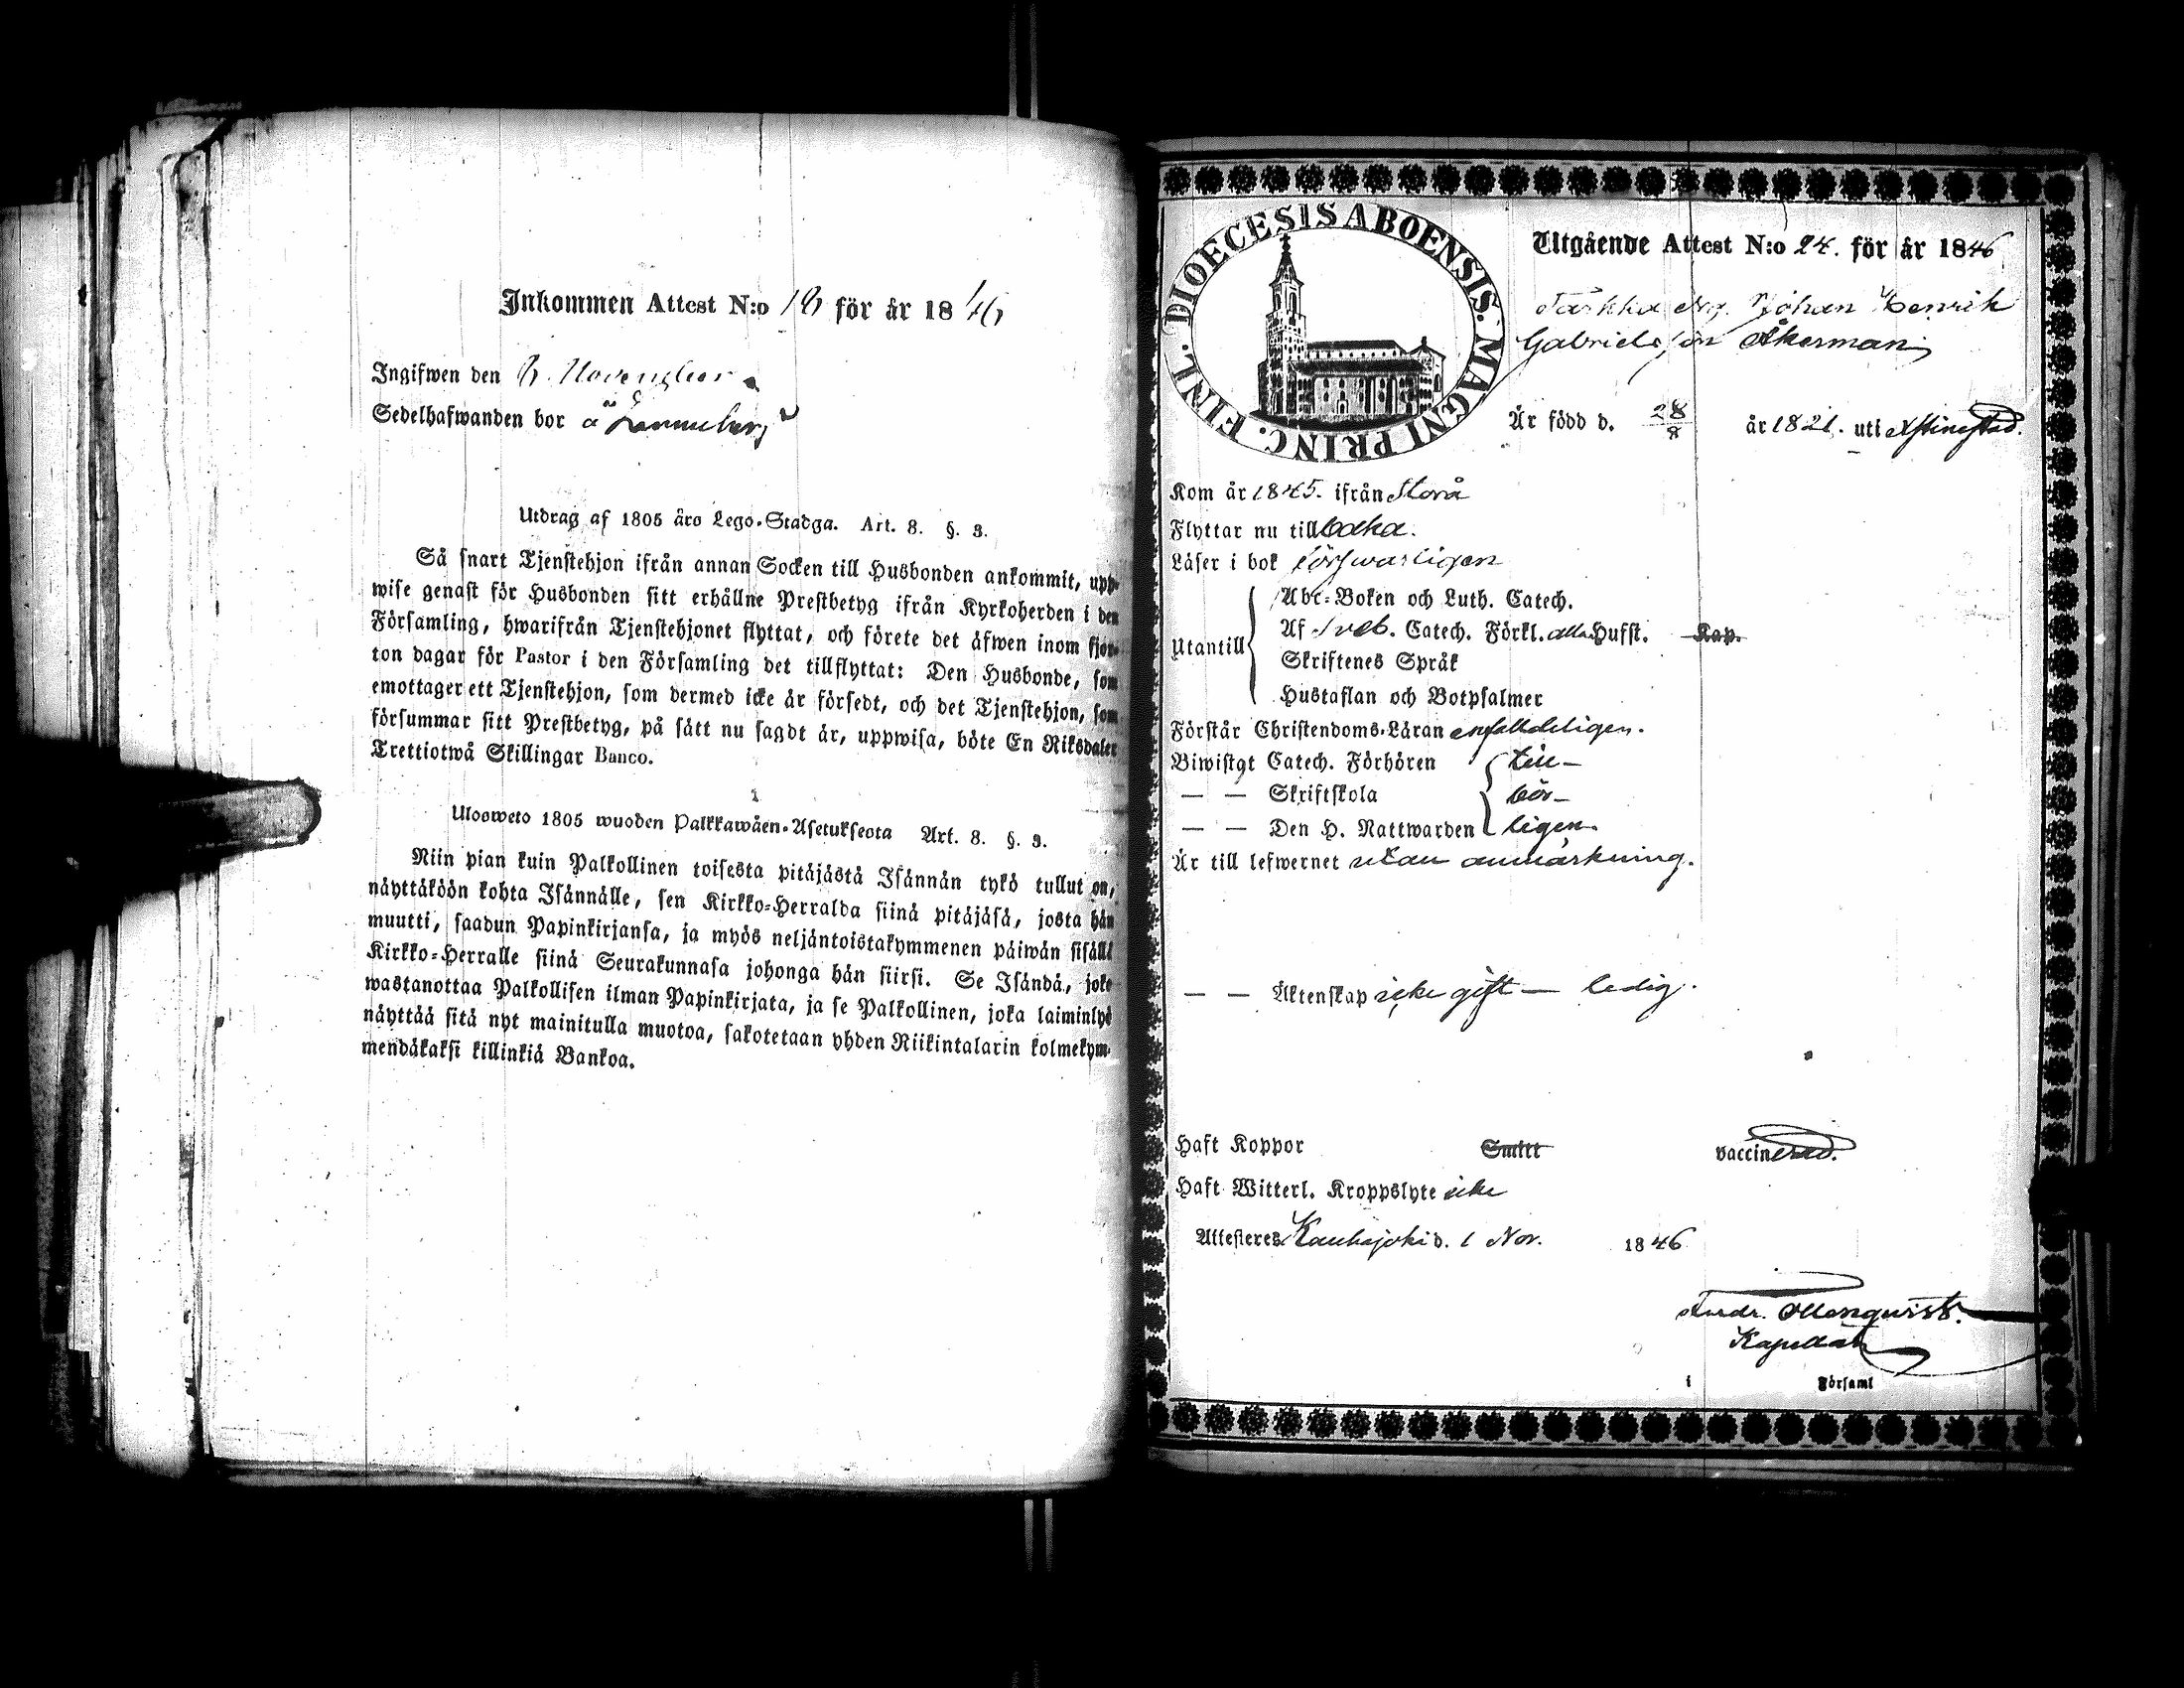 Inkommen Attest N:o 18 för år 1846
Ingifwen den 8. November
Sedelhafwanden bor å
Utdrag af 1805 års Lego-Stadga. Art. 8. §. 3.
Så snart Tjenstehjon ifrån annan Socken till Husbonden ankommit, upp-
wise genast för Husbonden sitt erhållne Prestbetyg ifrån Kyrkoherden i den
Församling, hwarifrån Tjenstehjonet flyttat, och förete det äfwen inom fjor-
ton dagar för Pastor i den Församling det tillflyttat: Den Husbonde, som
emottager ett Tjenstehjon, som dermed icke är försedt, och det Tjenstehjon, som
försummar sitt Prestbetyg, på sätt nu sagdt är, uppwisa, böte En Riksdaler
Trettiotwå Skillingar Banco.
Ulosweto 1805 wuoden Palkkawäen-Asetuksesta Art. 8. §. 3.
Niin pian kuin Palkollinen toisesta pitäjästä Isännän tykö tullut on,
näyttäköön kohta Isännälle, sen Kirkko-Herralda siinä pitäjäsä, josta hän
muutti, saadun Papinkirjansa, ja myös neljäntoistakymmenen päiwän sisällä
Kirkko-Herralle siinä Seurakunnasa johonga hän siirsi. Se Isändä, joke
wastanottaa Palkollisen ilman Papinkirjata, ja se Palkollinen, joka laiminlyö
näyttää sitä nyt mainitulla muotoa, sakotetaan yhden Riikintalarin kolmekym-
mendäkaksi killinkiä Bankoa.
DIOECESIS ABOENSIS. MAGNI PRINC. FINL.
Utgående Attest N:o 24. för år 1846
Johan Henrik
Gabrielsson Åkerman
Är född d. 28/8 år 1821. uti
Kom år 1845. ifrån Storå
Flyttar nu tillbaka.
Läser i bok försvarligen
Utantill
Abc-Boken och Luth. Catech.
Af Sveb. Catech. Förkl. alla Hufst. Kap.
Skriftenes Språk
Hustaflan och Botpsalmer
Förstår Christendoms-Läran enfalldeligen.
Biwistgt Catech. Förhören till-
— — Skriftskola bör-
— — Den H. Nattwarden ligen.
Är till lefwernet utan anmärkning.
— — Äktenskap icke gift — ledig.
Haft Koppor Smitt vaccinerad.
Haft Witterl. Kroppslyte icke
Attesteres Kauhajoki d. 1 Nov. 1846
Andr.
Kapellan
i Församl